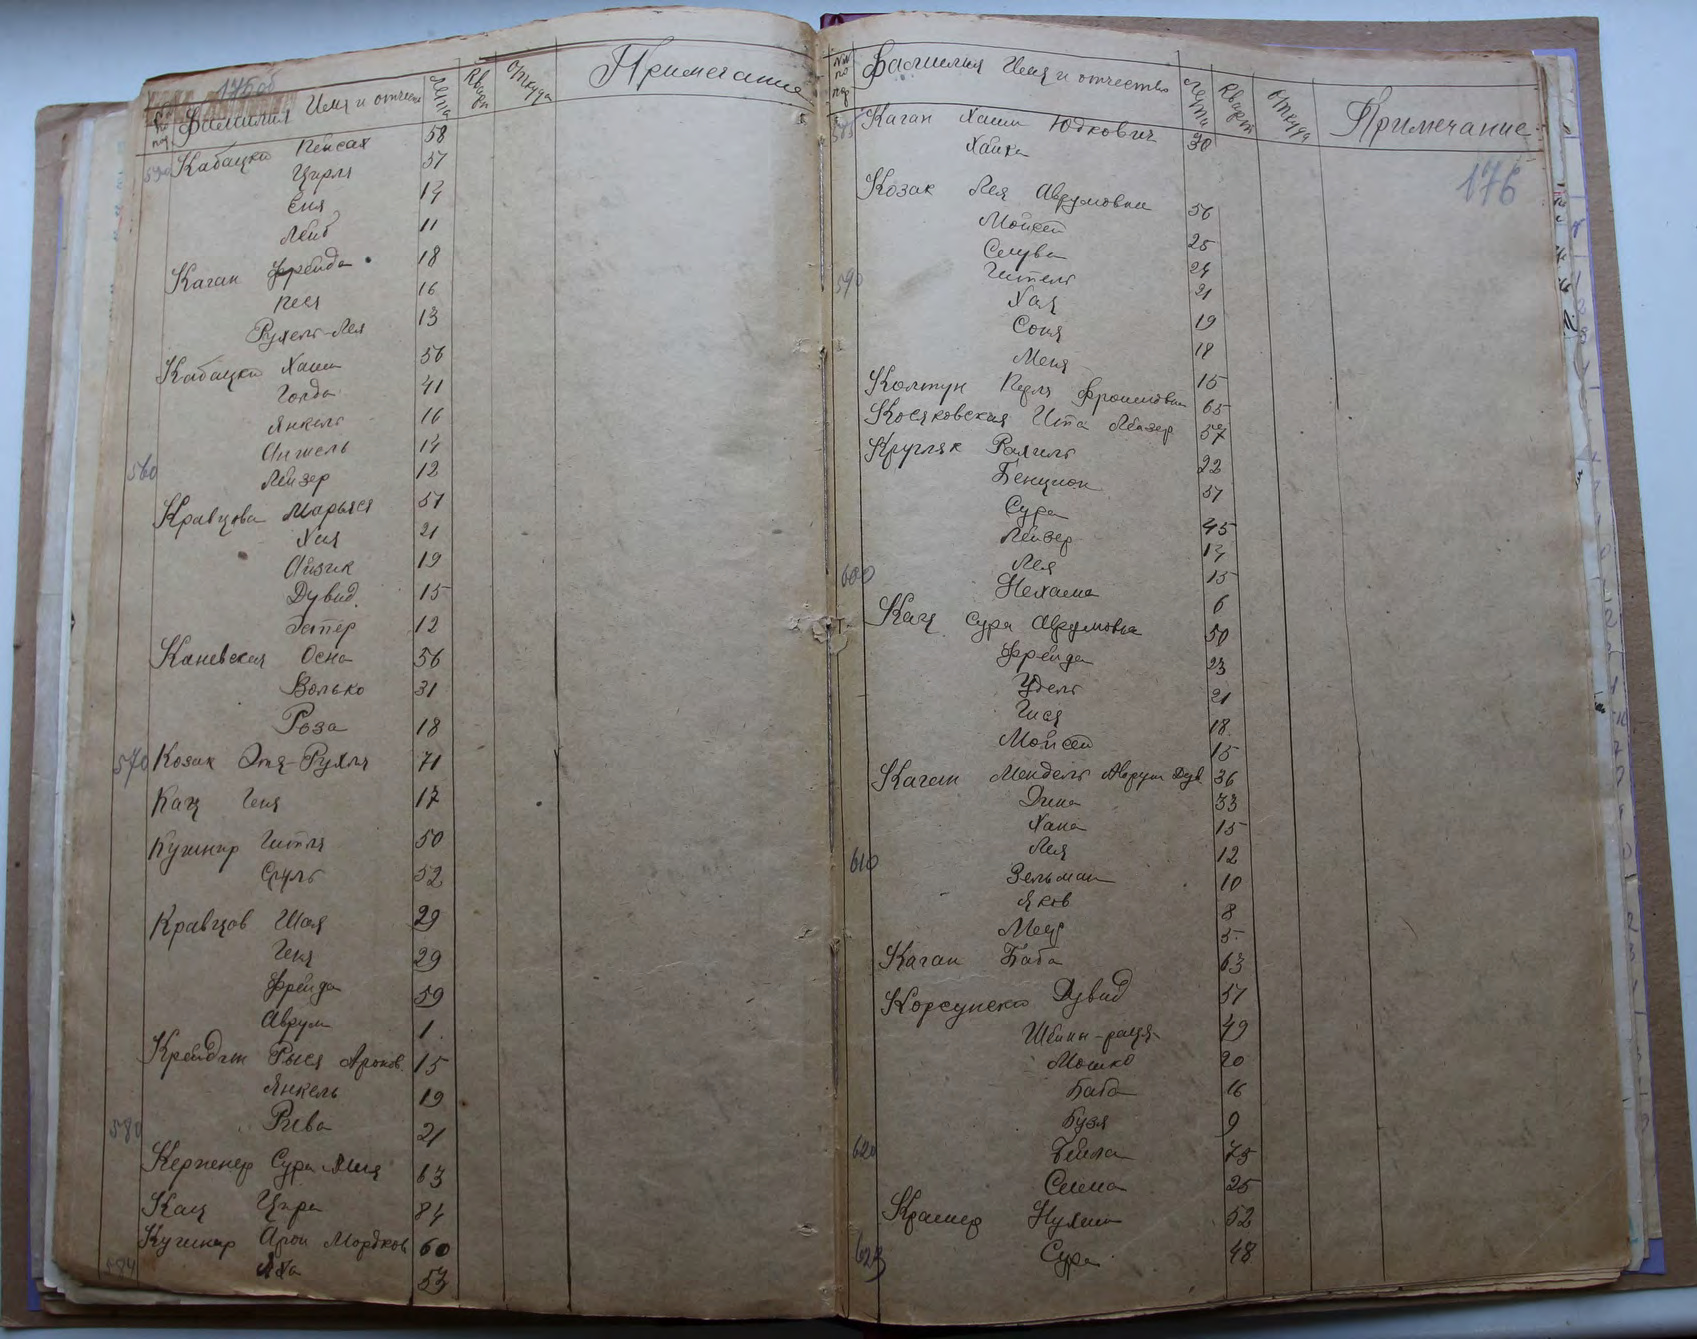 175об
№ по пор Фамилия Имя и отчест Лета Кварт Откуда Примечание
Кабацки Пейсах 58
Цирля 57
Еня 14
Лейб 11
Каган Фрейда 18
Песя 16
Рухель-Лея 13
Кабацки Хаим 56
Голда 41
Янкель 16
Аншель 14
560 Лейзер 12
Кравцова Марьяся 51
Хая 21
Айзик 19
Дувид 15
Эстер 12
Каневская Осна 56
Волько 31
Роза 18
570 Козак Этя-Рухля 71
Кац Геня 17
Кушнир Гитля 50
Сруль 52
Кравцов Шая 29
Геня 29
Фрейда 59
Аврум 1
Крейдич Рыся Аронов. 15
Янкель 19
580 Рива 21
Сура 63
Кац Цира 84
Кушнир Арон Мордков 60
584 Хя 53
№№ по пор Фамилия Имя и отчество Лета Кварт Откуда Примечание
176
585 Каган Хаим Юдкович 30
Хайка
Козак Лея Аврумовна 56
Мойсей 25
Слува 24
590 Гитель 21
Хая 19
Соня 18
Меня 15
Колтун Перля Фроимовна 65
Косяковская Ита Лейзер 57
Кругляк Рахиль 22
Бенцион 51
Сура 45
Лейзер 17
Лея 15
600 Нехама 6
Кац Сура Аврумовна 50
Фрейда 23
Удель 21
Гися 18
Мойсей 15
Каган Мендель Аврум Дув 36
Дина 33
Хана 15
Лея 12
610 Зельман 10
Яков 8
Меер 5
Каган Баба 63
Корсунски Дувид 51
Шейны-рация 49
Мошко 20
Баба 16
Бузя 9
620 Бейла 75
Сима 25
Крамер Нухим 52
623 Сура 48